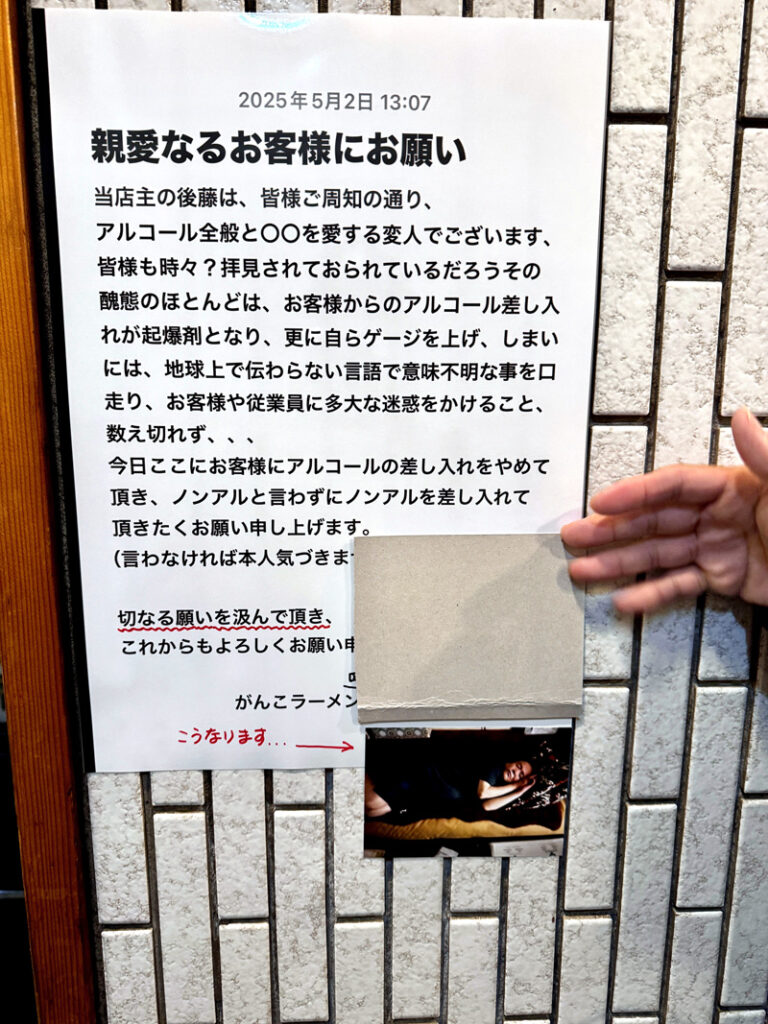 2025年5月2日 13:07
親愛なるお客様にお願い
当店主の後藤は、皆様ご周知の通り、
アルコール全般と〇〇を愛する変人でございます、
皆様も時々？拝見されておられているだろうその
醜態のほとんどは、お客様からのアルコール差し入
れが起爆剤となり、更に自らゲージを上げ、しまい
には、地球上で伝わらない言語で意味不明な事を口
走り、お客様や従業員に多大な迷惑をかけること、
数え切れず、、、
今日ここにお客様にアルコールの差し入れをやめて
頂き、ノンアルと言わずにノンアルを差し入れて
頂きたくお願い申し上げます。
（言わなければ本人気づきま
切なる願いを汲んで頂き、
これからもよろしくお願い申
がんこラーメン
こうなります...